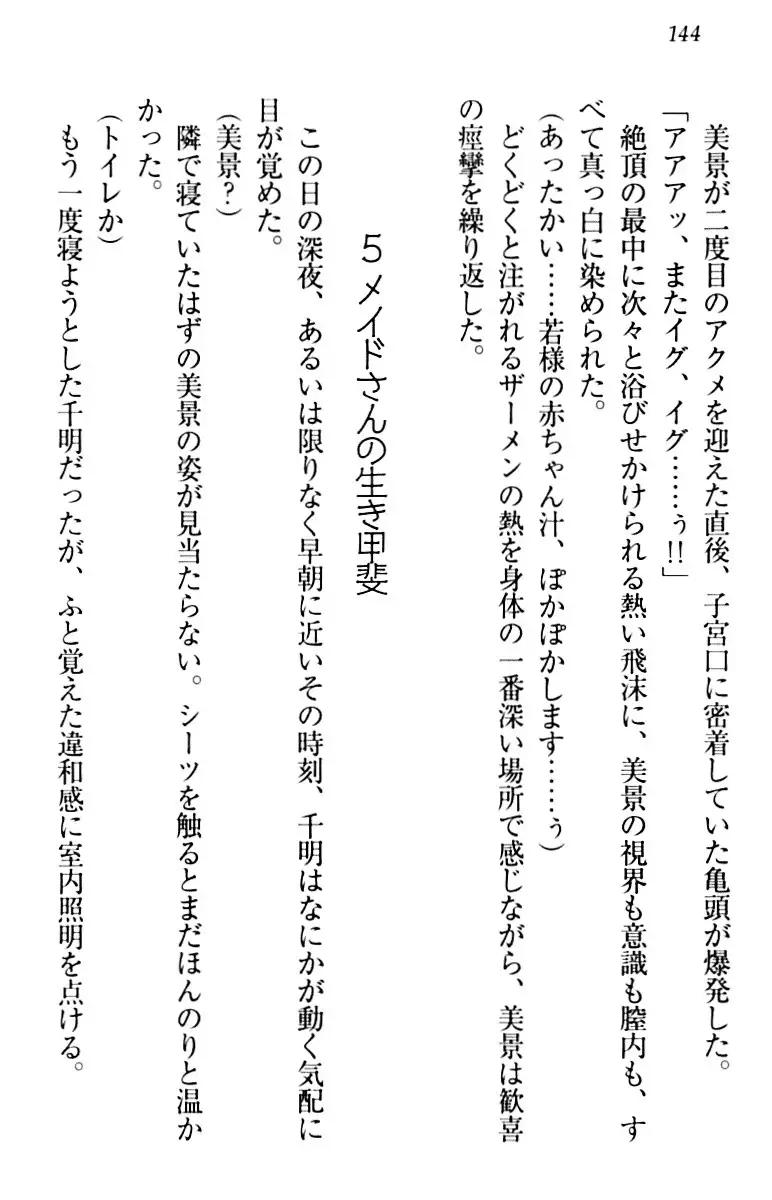 144
美景が二度目のアクメを迎えた直後、子宮口に密着していた亀頭が爆発した。
「アアアッ、またイグ、イグ……ぅ!!」
絶頂の最中に次々と浴びせかけられる熱い飛沫に、美景の視界も意識も膣内も、す
べて真っ白に染められた。
(あったかい……若様の赤ちゃん汁、ぽかぽかします……ぅ)
どくどくと注がれるザーメンの熱を身体の一番深い場所で感じながら、美景は歓喜
の痙攣を繰り返した。
5 メイドさんの生き甲斐
この日の深夜、あるいは限りなく早朝に近いその時刻、千明はなにかが動く気配に
目が覚めた。
(美景?)
隣で寝ていたはずの美景の姿が見当たらない。シーツを触るとまだほんのりと温か
かった。
(トイレか)
もう一度寝ようとした千明だったが、ふと覚えた違和感に室内照明を点ける。